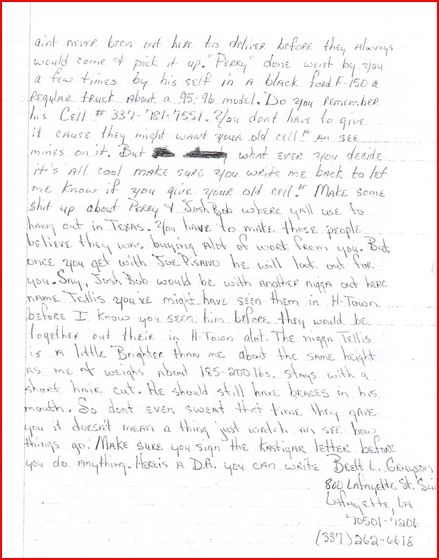 aint never been out here to deliver before they always
would come & pick it up. "Perry" done went by you
a few times by his self in a black Ford F-150 a
regular truck about a 95-96 model. Do you remember
his Cell # 337-781-7551. You dont have to give
it cause they might want your old cell!" an see
mines on it. But what ever you decide
it's all cool make sure you write me back to let
me know if you give your old cell!" Make some
shit up about Perry & Josh Bob where yall use to
hang out in Texas. You have to make those people
believe they was buying alot of work from you. But
once you get with Joe Pisano he will look out for
you. Say, Josh Bob would be with another nigga out here
name Tellis you've might have seen them in H-Town
before I know you seen him before they would be
together out their in H-Town alot. The nigga Tellis
is a little Brighter than me about the same height
as me & weighs about 185-200 lbs. stays with a
short hair cut. He should still have braces in his
mouth. So dont even sweat that time they gave
you it doesn't mean a thing just watch an see how
things go. Make sure you sign the Kastigar letter before
you do anything. Here is a D.A. you can write Brett L. Grayson
800 Lafayette St.
Lafayette, LA
70501-7206
(337) 262-6618